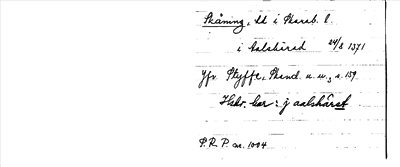 Skåning, Ld i Skarab. l.
i Aalshärad 24/8 1371
Jfr Styffe, Skand. u. u.3 s. 159.
Hskr. har: j aalshäræt
S.R.P. nr. 1004